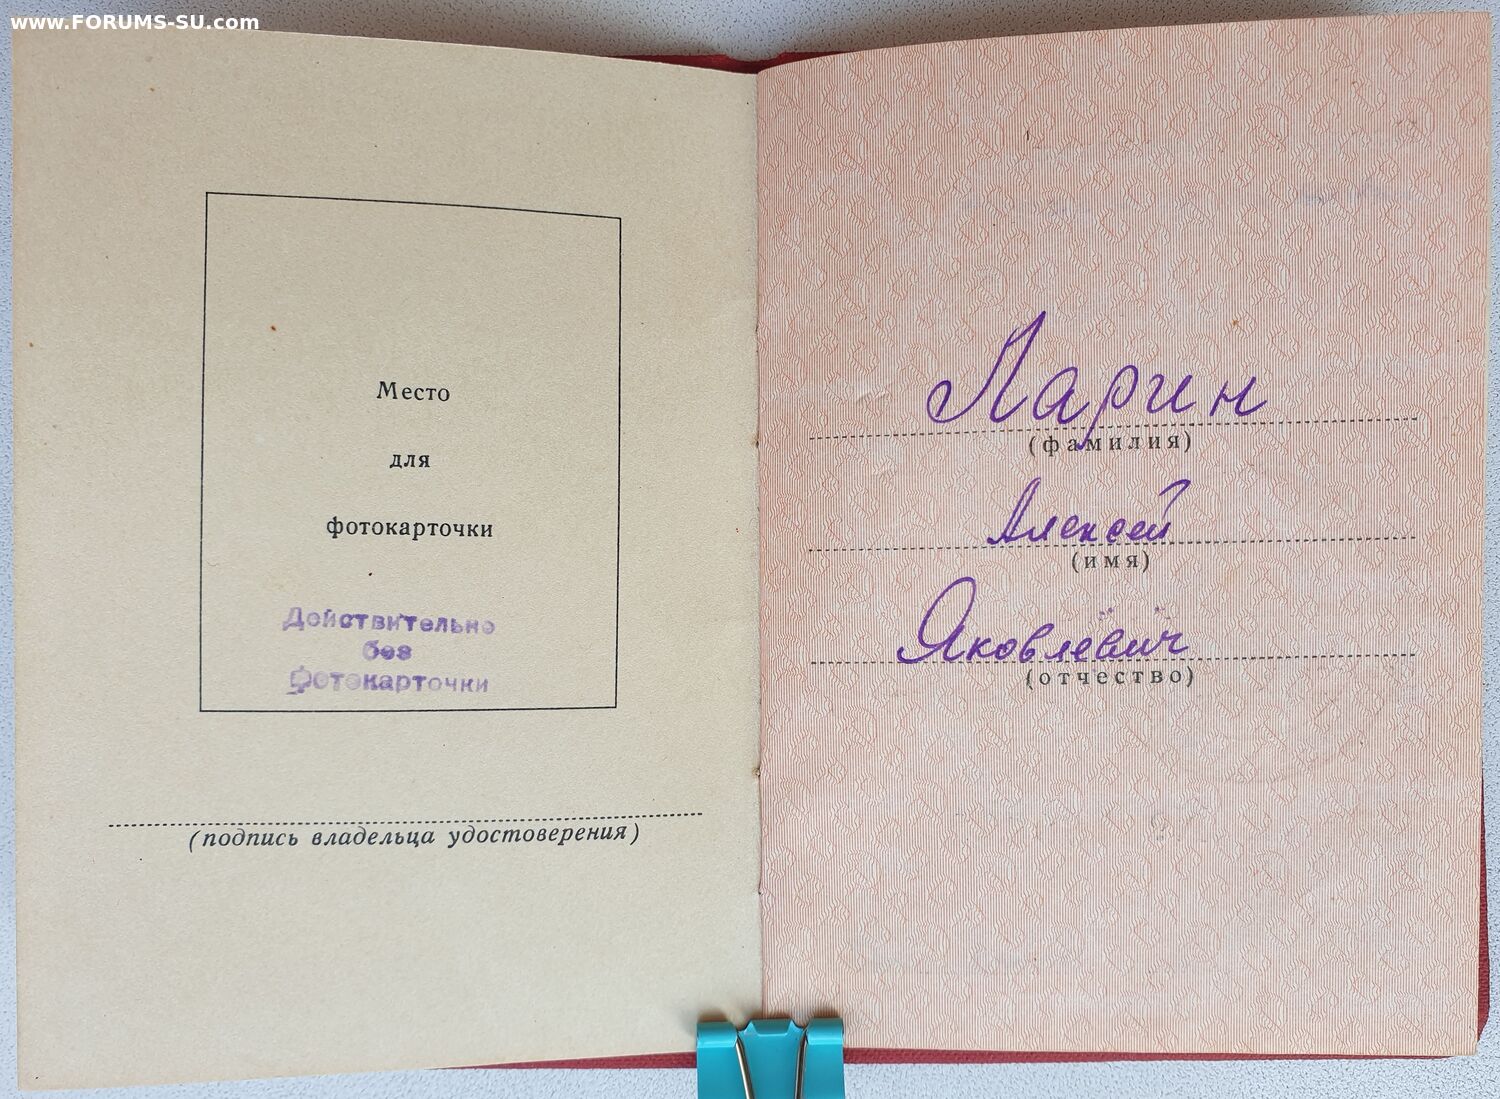 www.FORUMS-SU.com
Место
для
фотокарточки
Действительно
без
фотокарточки
(подпись владельца удостоверения)
Ларин
(фамилия)
Алексей
(имя)
Яковлевич
(отчество)